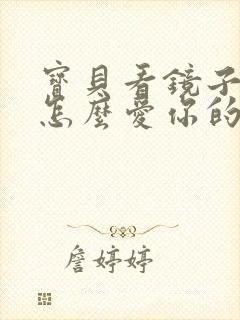 寶貝看鏡子
怎麼愛你的
詹婷婷